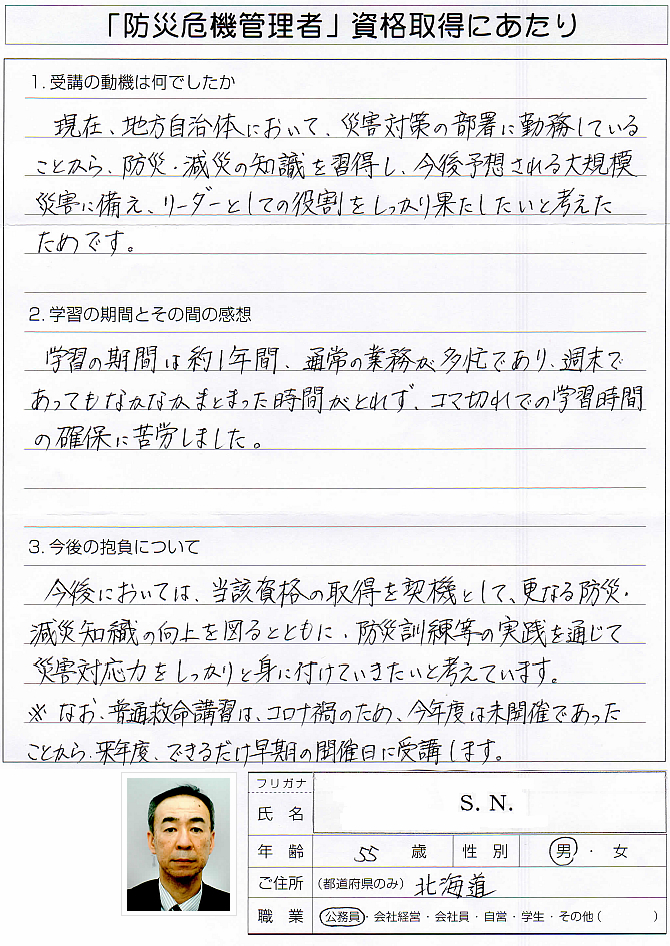 「防災危機管理者」資格取得にあたり
1. 受講の動機は何でしたか
現在、地方自治体において、災害対策の部署に勤務している
ことから、防災・減災の知識を習得し、今後予想される大規模
災害に備え、リーダーとしての役割をしっかり果たしたいと考えた
ためです。
2. 学習の期間とその間の感想
学習の期間は約1年間、通常の業務が多忙であり、週末で
あってもなかなかまとまった時間がとれず、コマ切れでの学習時間
の確保に苦労しました。
3. 今後の抱負について
今後においては、当該資格の取得を契機として、更なる防災・
減災知識の向上を図るとともに、防災訓練等の実践を通じて
災害対応力をしっかりと身に付けていきたいと考えています。
※ なお、普通救命講習は、コロナ禍のため、今年度は未開催であった
ことから、来年度、できるだけ早期の開催日に受講します。
フリガナ
氏名 S. N.
年齢 55 歳 性別 男・女
ご住所 (都道府県のみ) 北海道
職業 公務員・会社経営・会社員・自営・学生・その他( )